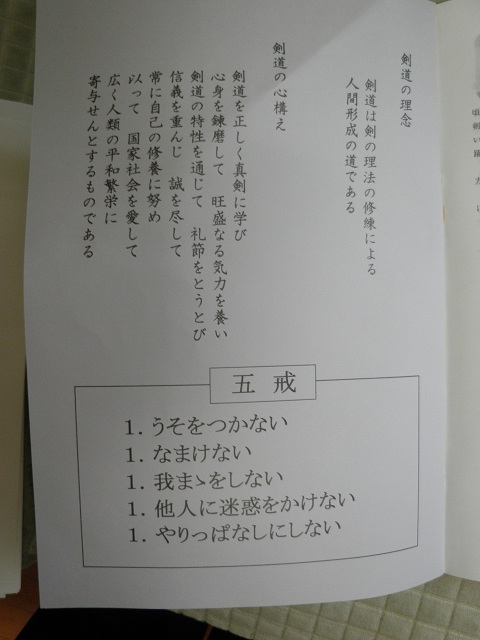 剣道の理念
剣道は剣の理法の修練による
人間形成の道である
剣道の心構え
剣道を正しく真剣に学び
心身を錬磨して 旺盛なる気力を養い
剣道の特性を通じて 礼節をとうとび
信義を重んじ 誠を尽して
常に自己の修養に努め
以って 国家社会を愛して
広く人類の平和繁栄に
寄与せんとするものである
五 戒
1. うそをつかない
1. なまけない
1. 我まゝをしない
1. 他人に迷惑をかけない
1. やりっぱなしにしない